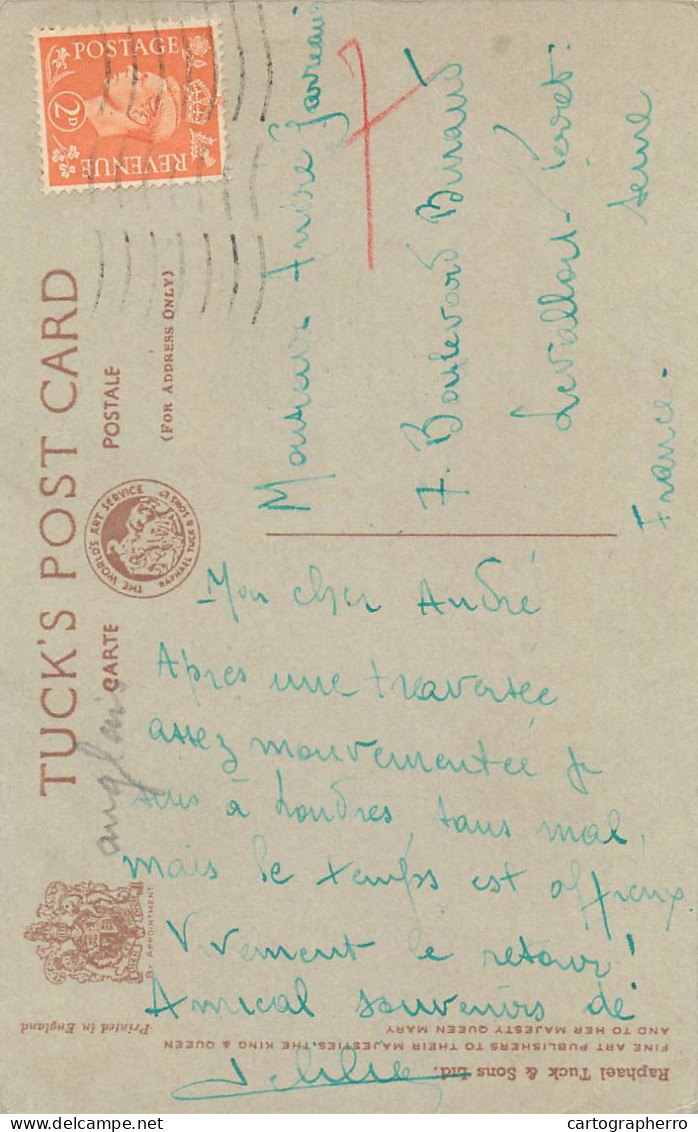 POSTAGE
2D
REVENUE
TUCK'S POST CARD
CARTE POSTALE
(FOR ADDRESS ONLY)
THE WORLD'S ART SERVICE
RAPHAEL TUCK & SONS LTD
anglais
BY APPOINTMENT
Printed in England
Raphael Tuck & Sons Ltd.
FINE ART PUBLISHERS TO THEIR MAJESTIES, THE KING & QUEEN
AND TO HER MAJESTY QUEEN MARY
Monsieur André
7
7. Boulevard
Levallois-Perret.
Seine
France.
Mon cher André
Après une traversée
assez mouvementée je
suis à Londres, sans mal,
mais le temps est affreux.
Vivement le retour!
Amical souvenirs de
cartographerro
cartographerro.com